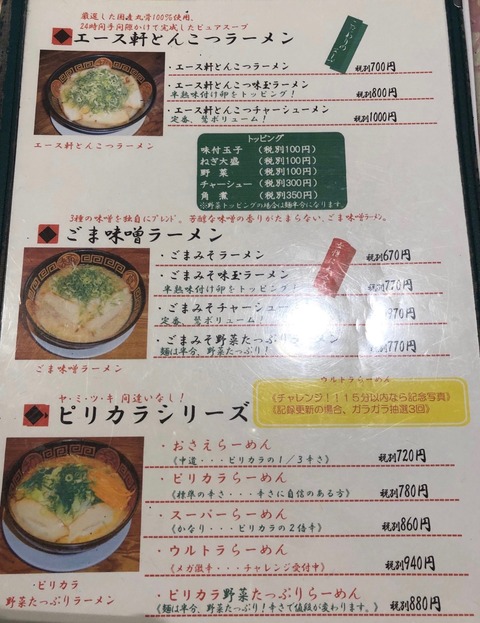 厳選した国産丸骨100%使用、
24時間手間隙かけて完成したピュアスープ
エース軒とんこつラーメン
こだわりの
・エース軒とんこつラーメン 税別700円
・エース軒とんこつ味玉ラーメン
半熟味付け卵をトッピング! 税別800円
・エース軒とんこつチャーシューメン
定番、驚ボリューム! 税別1000円
エース軒とんこつラーメン
トッピング
味付玉子 (税別100円)
ねぎ大盛 (税別100円)
野菜 (税別100円)
チャーシュー (税別300円)
角煮 (税別350円)
※野菜トッピングの場合は麺半分になります。
3種の味噌を独自にブレンド。芳醇な味噌の香りがたまらない、ごま味噌ラーメン。
ごま味噌ラーメン
・ごまみそラーメン 税別670円
・ごまみそ味玉ラーメン
半熟味付け卵をトッピング! 税別770円
・ごまみそチャーシュー 970円
定番、驚ボリューム!
・ごまみそ野菜たっぷりラーメン
麺は半分、野菜たっぷり! 税別770円
ごま味噌ラーメン
ヤ・ミ・ツ・キ 間違いなし!
ピリカラシリーズ
ウルトラらーめん
《チャレンジ!!15分以内なら記念写真》
《記録更新の場合、ガラガラ抽選3回》
・おさえらーめん
《中道・・・ピリカラの1/3辛さ》 税別720円
・ピリカラらーめん
《標準の辛さ・・・辛さに自信のある方》 税別780円
・スーパーらーめん
《かなり・・・ピリカラの2倍辛》 税別860円
・ウルトラらーめん
《メガ激辛・・・チャレンジ受付中》 税別940円
・ピリカラ野菜たっぷりらーめん
《麺は半分、野菜たっぷり!辛さで値段が変わります。》 税別880円
・ピリカラ
野菜たっぷりラーメン